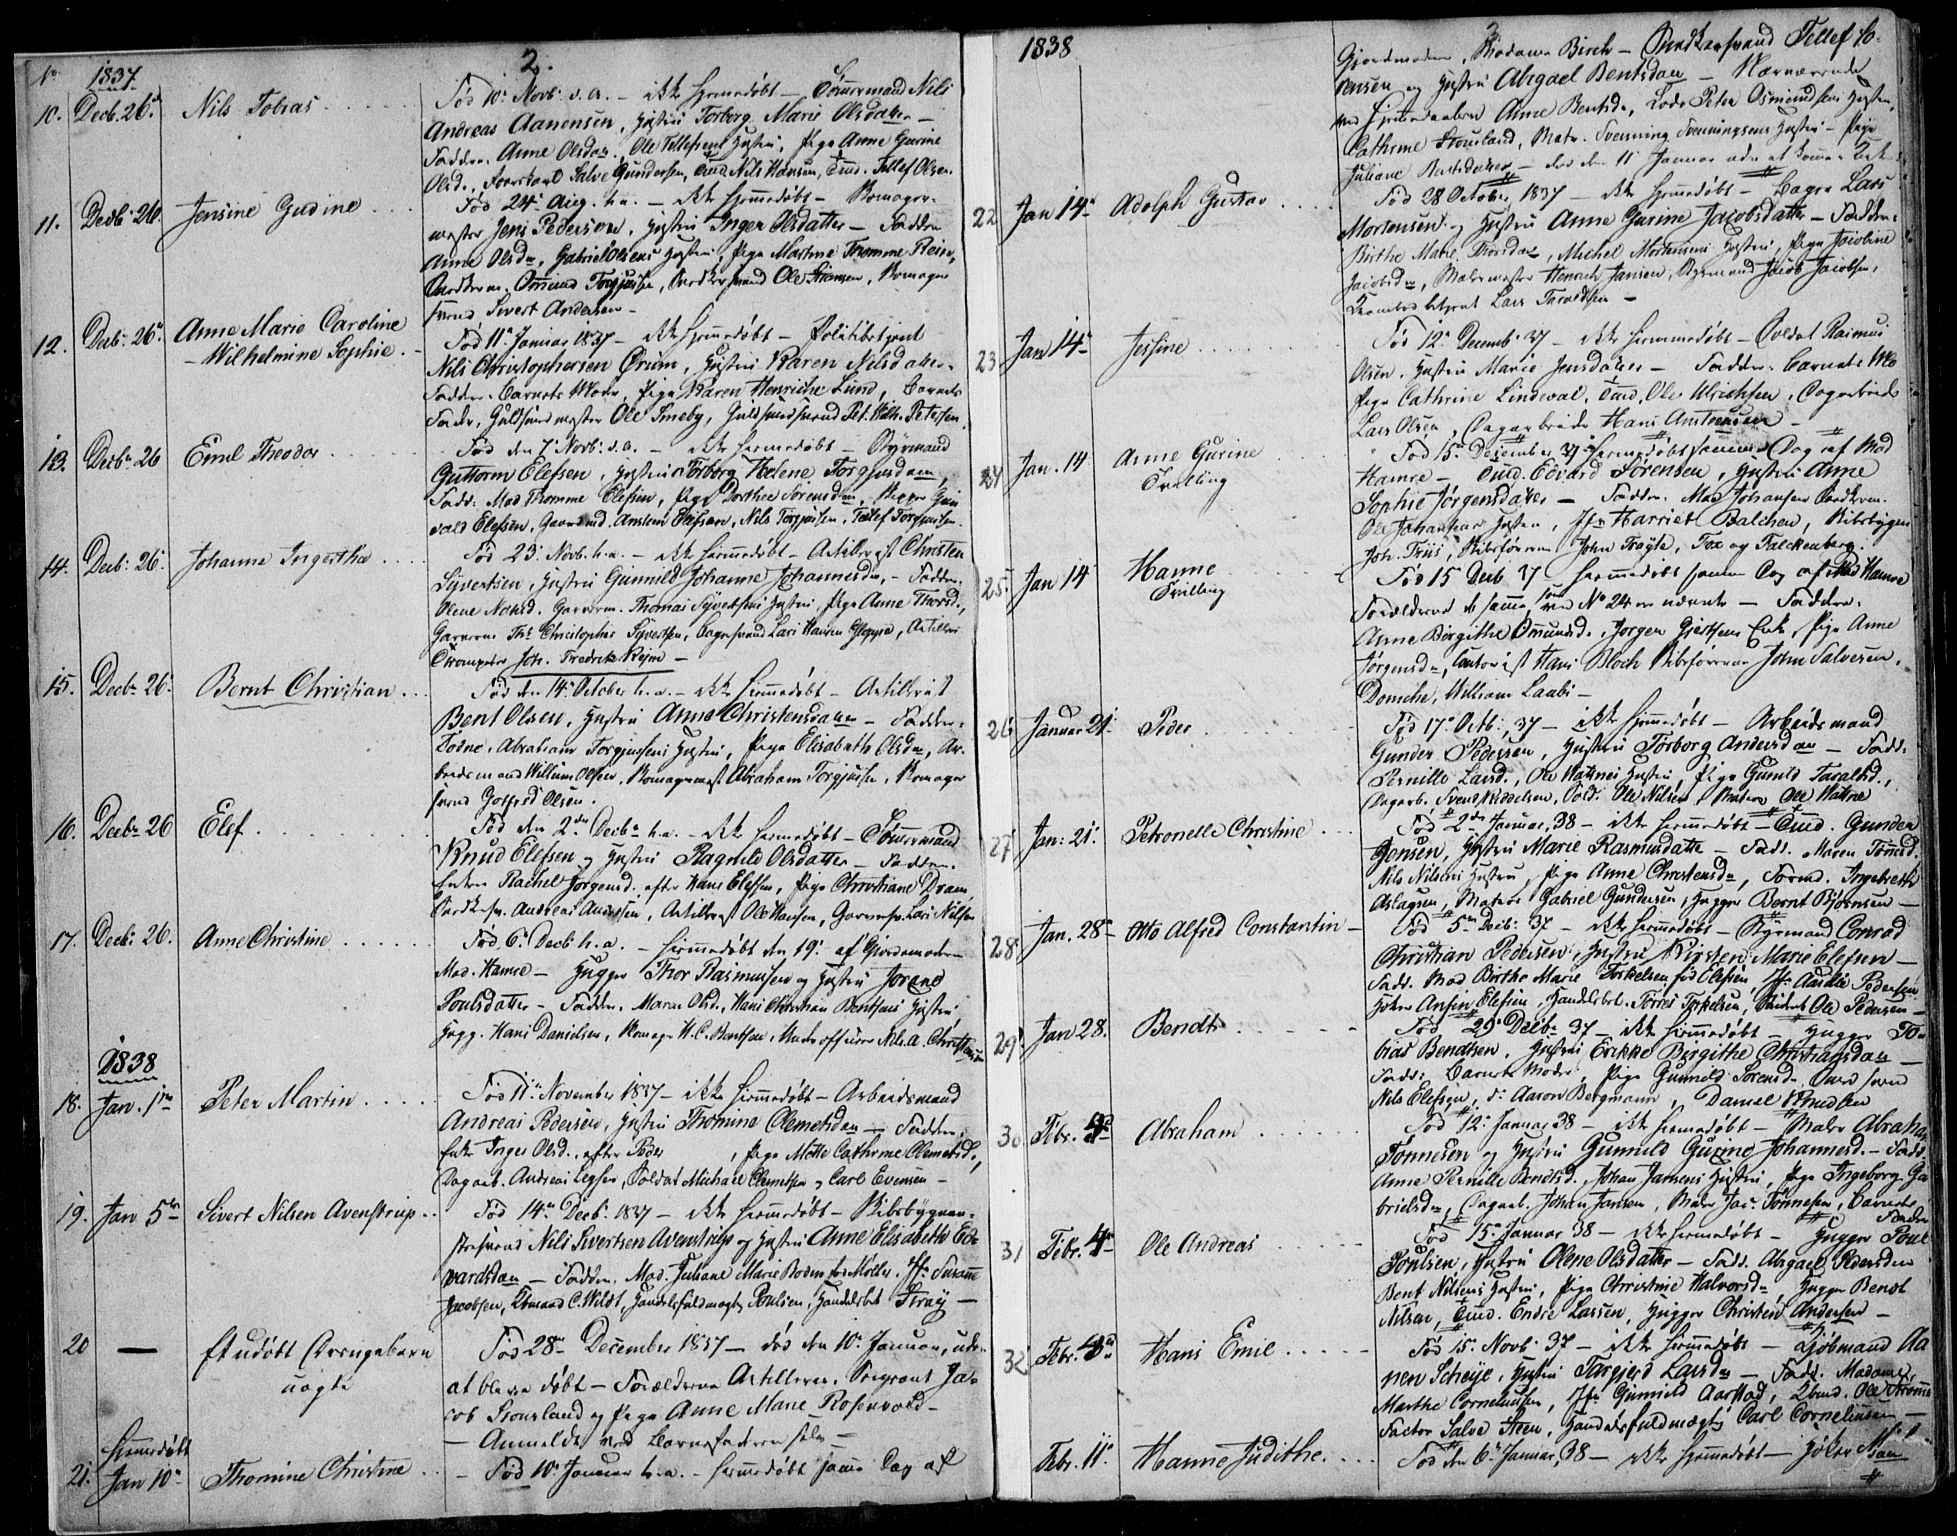 No 1837 2.
10. Decb. 26. Nils Tobias Fød 10 Novb. d. A. – ikke hjemmedøbt – Tømmermand Nils
Andreas Aanensen, Hustru Torborg Marie Olsdatter –
Faddere: Anne Olsdr, Ole Tellefsens Hustru, Pige Anne Gurine
Olsd., Salve Gundersen, Tmd. Nils Hansen, Tmd. Tellef Olsen.
11. Decb. 26. Jensine Gudine Fød 24. Aug. h.a. – ikke hjemmedøbt – Romager-
mester Jens Pedersen, Hustru Inger Olsdatter – Faddere
Anne Olsdr, Gabriel Olsens Hustru, Pige Martine Thomine Reier,
Omund Torgjusen, Snedkersvend Ole Hansen, Romager
svend Sivert Andersen –
12. Decb. 26. Anne Marie Caroline
Wilhelmine Sophie Fød 11 Januar 1837 – ikke hjemmedøbt – Politibetjent
Nils Christophersen Ørum, Hustru Karen Nilsdatter –
Faddere: Barnets Moder, Pige Karen Henriche Lund, Barnets
Fader, Guldsmedmester Ole Smeby, Guldsmedsvend Pet. Wilh. Petersen.
13. Decbr 26 Emil Theodor Fød den 7. Novb. d.A. – ikke hjemmedøbt – Styrmand
Guttorm Elefsen, Hustru Torborg Helene Torgjusdatter,
Fadd: Mad. Thomine Elefsen, Pige Dorthea Sørensdr,
vald Elefsen, Anstein Elefsen, Nils Torgjusen, Tellef Torgjusen.
14. Decb. 26. Johanne Ingertha Fød 23. Novb. h.a. – ikke hjemmedøbt – Artillerist Christen
Syvertsen, Hustru Gunnild Johanne Johannesdr, – Faddere:
Olene Nilsd. Garverm. Thomas Syvertsens Hustru, Pige Anne Thorsd.,
Garverm. Ths. Christopher Syvertsen, Bagersvend Lars Hansen Gloppe, Artilleri
Trompeter Joh. Fredrik Rejm –
15. Decbr 26. Bernt Christian Fød den 14. October h.a. – ikke hjemmedøbt – Artillerist
Bent Olsen, Hustru Anne Christensdatter – Faddere:
Todne, Abraham Torgjusens Hustru, Pige Elisabeth Olsdr, Ar-
beidsmand William Olsen, Romagermest. Abraham Torgjusen, Romager
svend Gotfred Olsen.
16. Decbr 26 Elef Fød den 2den Decbr h.a. – ikke hjemmedøbt – Tømmermand
Knud Elefsen og Hustru Ragnild Olsdatter – Faddere:
Enken Rachel Jørgensd. efter Hans Elefsen, Pige Christiane Dram,
Snedkersv. Andreas Andersen, Artillerist Ole Hansen, Garversv. Lars Nilsen
17. Decb. 26. Anne Christine Fød 6. Decb. h.a. – hjemmedøbt den 19. af Gjordemoder
Mad. Hamre – Hugger Thor Rasmussen og Hustru Jorand
Poulsdatter – Faddere: Maren Olsd., Hans Christian Bentsens Hustru,
Hugg. Hans Danielsen, Romager H. C. Bentsen, Underofficeer Nils A. Christensen
1838
18. Jan. 1ste Peter Martin Fød 11te November 1837 – ikke hjemmedøbt – Arbeidsmand
Andreas Pedersen, Hustru Thomine Clemetsdatter – Faddere:
Enke Inger Olsd. efter Peder , Pige Mette Cathrine Clemetsd.,
Dagarb. Andreas Legher, Soldat Michael Clemetsen og Carl Evensen –
19. Jan 5te Sivert Nilsen Avenstrup Fød 14de Decb. 1837 – ikke hjemmedøbt – Skibsbygnings-
svend Nils Sivertsen Avenstrup og Hustru Anne Elisabeth Ed-
vardsdatter – Faddere: Mad. Juliane Marie Boden fød Møller, Jfr. Susanne
Jacobsen, C. Wildt, Handelsfuldmægtig Poulsen, Handelsbet. Straÿ –
20 – Et udøbt Drengebarn
uægte Fød 28de December 1837 – døde den 10. Januar, uden
at blive døbt – Forældrene Artilleri-Sergeant Ja-
cob Stousland og Pige Anne Marie Rosenvold –
– Anmeldt ved Barnefaderen selv –
hjemmedøbt
21. Jan 10. Thomine Christine – Fød 10 Januar h.a. – hjemmedøbt samme Dag af
1838 3.
Gjordmoderen, Madame Birch – Snedkersvend Tellef So-
rensen og Hustru Abigael Bentsdatter – Nærværende
ved hjemmedaaben Anne Bentsd., Lods Peter Osmundsens Hustru,
Cathrine Stousland, Matr. Svenning Svenningsens Hustru – Pige
Juliane Bentsdatter – døde den 11 Januar
22 Jan 14. Adolph Gustav Fød 28 October 1837 – ikke hjemmedøbt – Bager Lars
Mortensen og Hustru Anne Gurine Jacobsdatter – Faddere:
Birthe Marie Thorsdr, Michel Mortensens Hustru, Pige Jacobine
Jacobsdr, Malermester Henrich Jansen, Styrmand Jacob Jacobsen,
Lars Taraldsen –
23 Jan 14. Jessine Fød 12. Decemb. 37 – ikke hjemmedøbt – Soldat Rasmus
Olsen, Hustru Marie Jensdatter – Faddere: Barnets Mo
Pige Cathrine Lindeval, Tmd. Ole Ulrichsen, Dagarbeider
Lars Olsen, Dagarbeider Hans Amtrudsen –
24 Jan. 14 Anne Gurine
Tvilling Fød 15. December 37 – hjemmedøbt samme Dag af Mad
Hamre – Tmd. Edvard Sørensen, Hustru Anne
Sophie Jørgensdatter – Faddere: Mad. Johansen Snedkerm.
Ole Johansens Hustru, Jfr Harriet Balchen, Skibsbygm.
Joh. Friis, Skibsførerne John Frøyte, Fox og Falckenberg.
25. Jan 14 Hanne
Tvilling Fød 15 Decb. 37 – hjemmedøbt samme Dag af Mad Hamre
Forældrene de samme som ved No 24 er nævnte – Faddere:
Anne Børgithe Omundsd., Jørgen Gjertsens Enke, Pige Anne
Jørgensdr, Contorist Hans Bloch, Skibsførerne John Salvesen,
Domiche, William Laabi –
26 Januar 21. Peder Fød 17. Octb. 37 – ikke hjemmedøbt – Arbeidsmand
Gunder Pedersen, Hustru Torborg Andersdatter – Fadd:
Pernille Larsd., Ole Hattnes Hustru, Pige Gunild Taraldsd.,
Dagarb. Svend Middelsen, Sold. Ole Nilsen, Matros Ole Hattne
27 Jan: 21. Petronelle Christine Fød 2den Januar, 38 – ikke hjemmedøbt – Tmd. Gunder
Jensen, Hustru Marie Rasmusdatter – Fadd: Maren Tønnesd.
Nils Nilsens Hustru, Pige Anne Christensdr, Tørmd. Ingebreth
Aslagsen, Matros Gabriel Gundersen, Hugger Bernt Bjørnsen –
28. Jan. 28. Otto Alfred Constantin Fød 5te Decb. 37 – ikke hjemmedøbt – Styrmand Conrad
Christian Pedersen, Hustru Kirsten Marie Elefsen –
Fadd: Mad Birthe Marie Torkelsen fød Elefsen, Jfr. Amalie Pedersen
Høker Ansten Elefsen, Handelsbet. Torres Torkelsen, Student Ole Pedersen –
29. Jan 28. Bendt Fød 29. Decb. 37 – ikke hjemmedøbt – Hugger To-
bias Bendtsen, Hustru Erikke Børgithe Christiansdatter –
Fadd: Barnets Moder, Pige Gunnild Sørensd.
Nils Elefsen, d: Aaron Bergmann, Daniel Knudsen
30 Febr. 4de Abraham Fød 12. Januar 38 – ikke hjemmedøbt – Maler Abraham
Tønnesen og Hustru Gunnild Gurine Johannesd. – Fadd:
Anne Pernille Bendtsd., Johan Jansens Hustru, Pige Ingeborg Ga
brielsdr, Dagarb. Johan Jansen, Maler Jac. Tønnesen, Barnets
Fader
31 Febr. 4de Ole Andreas Fød 15. Januar 38 – ikke hjemmedøbt – Hugger Poul
Poulsen, Hustru Olene Olsdatter – Fadd: Abigael Pedersdtr
Bent Nilsens Hustru, Pige Christine Halvorsdr, Hugger Bendt
Nilsen, Tmd. Endre Larsen, Hugger Christen Andersen –
32 Febr. 4de Hans Emil Fød 15. Novb. 37 – ikke hjemmedøbt – Kjøbmand Aa
nen Scheije, Hustru Targjerd Larsdr – Fadd: Madame
Marthe Corneliussen, Jfr. Gunnild Aarstad, Ole Thomme
Factor Salve Steen, Handelsfuldmægtig Carl Corneliussen –
Febr. 11. Hanne Judithe Fød den 6. Januar, 38 – ikke hjemmedøbt – Høker